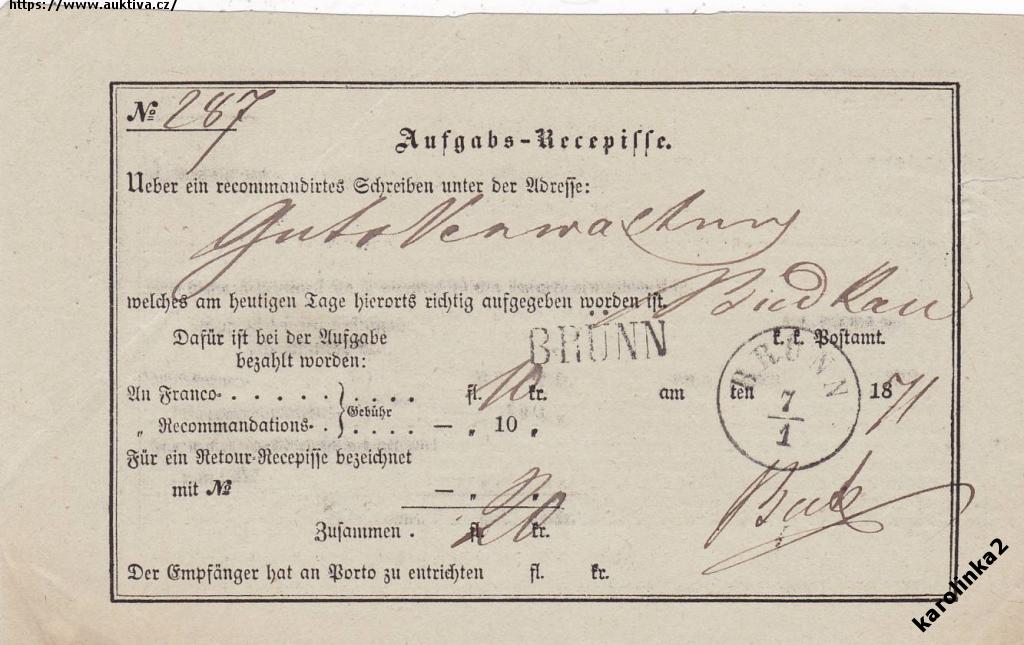 https://www.auktiva.cz/
№ 287
Aufgabs-Recepisse.
Ueber ein recommandirtes Schreiben unter der Adresse:
Guts Verwaltung
welches am heutigen Tage hierorts richtig aufgegeben worden ist.
Dafür ist bei der Aufgabe BRÜNN k. k. Postamt.
bezahlt worden:
An Franco- . . . . . . } . . . . fl. kr. am ten BRÜNN 7/1 1871
„ Recommandations- . . } Gebühr . . . . — „ 10 „
Für ein Retour-Recepisse bezeichnet
mit № — „ „
Zusammen . fl. 20 kr.
Der Empfänger hat an Porto zu entrichten fl. kr.
karolinka2